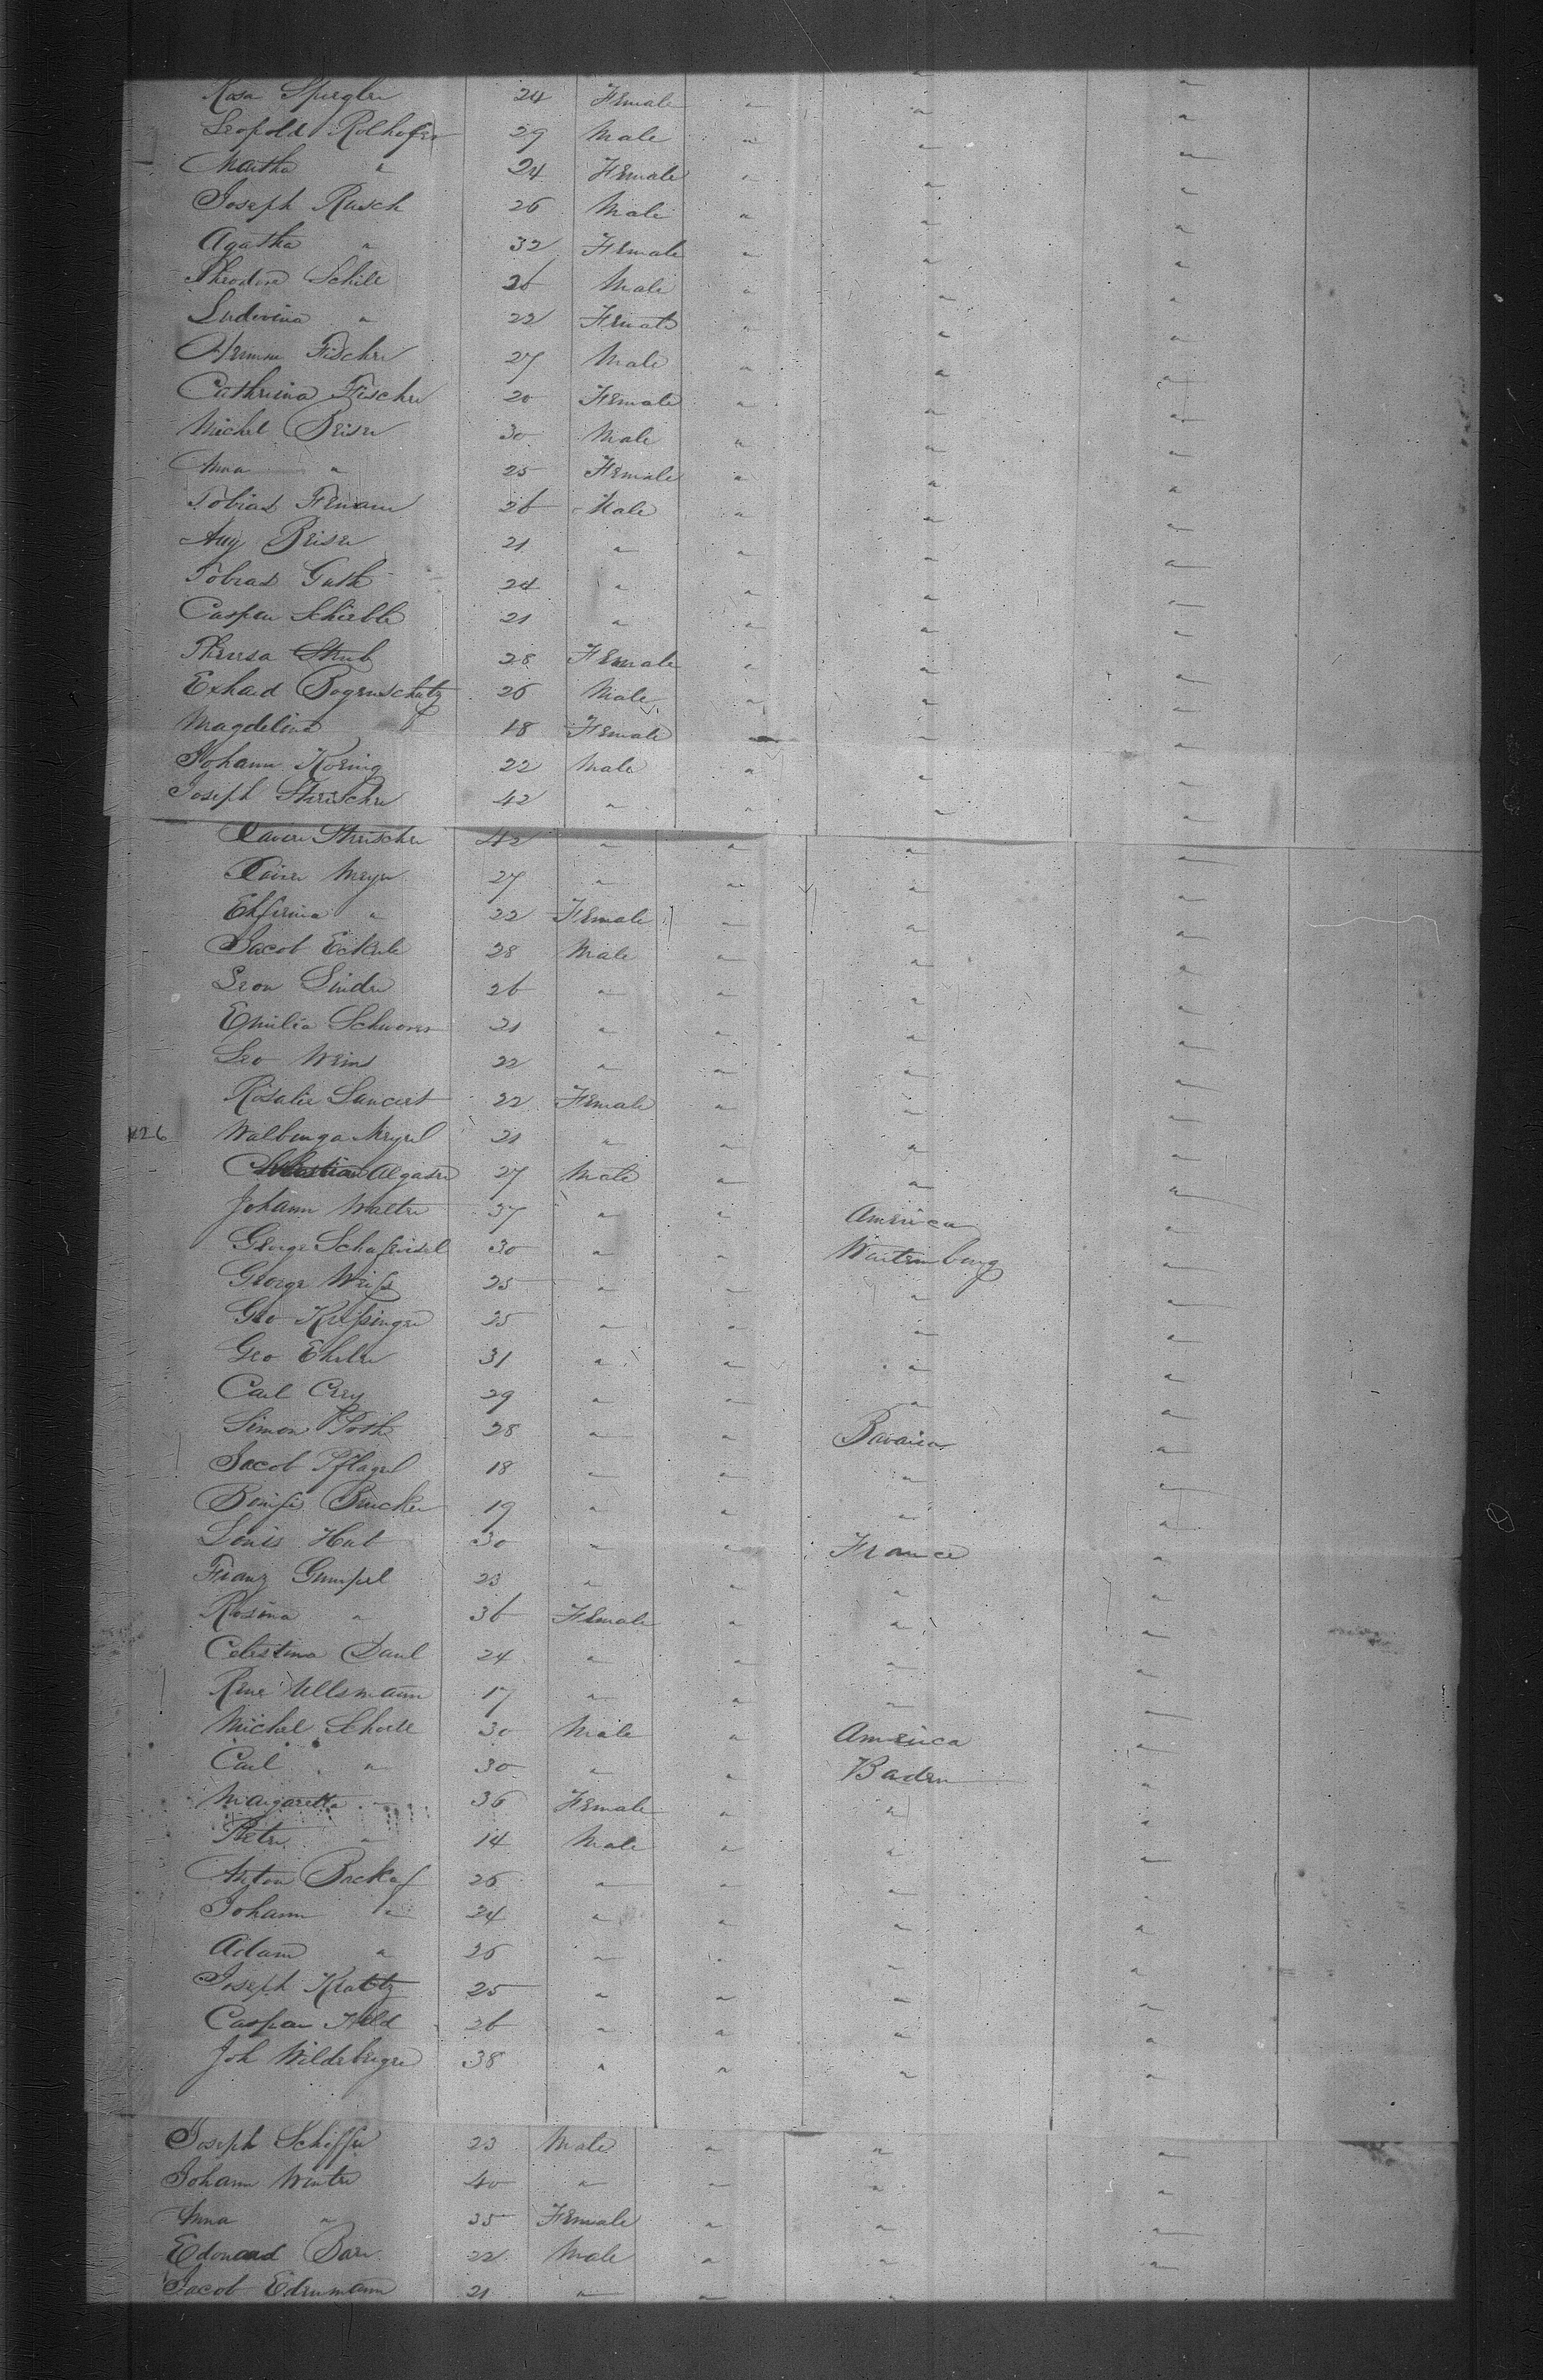 Rosa Spiegler 24 Female " " "
Leopold Rolhofer 29 Male " " "
Martha " 24 Female " " "
Joseph Rasch 26 Male " " "
Agatha " 32 Female " " "
Theodore Schill 26 Male " " "
Ludovina " 22 Female " " "
Fischer 27 Male " " "
Catherina Fischer 20 Female " " "
Michel Beiser 30 Male " " "
Anna " 25 Female " " "
Tobias 26 Male " " "
Aug Beiser 21 " " " "
Tobias Guth 24 " " " "
Caspar Schieble 21 " " " "
Theresa Strub 28 Female " " "
Exhard Bogenschutz 26 Male " " "
Magdelina 18 Female " " "
Johann Koenig 22 Male " " "
Joseph Streicher 42 " " " "
Xaver Streicher 42 " " " "
Xaver Meyer 27 " " " "
22 Female " " "
Jacob Eckerle 28 Male " " "
Leon Linder 26 " " " "
Emilia 21 " " " "
Leo Weins 22 " " " "
Rosalie 22 Female " " "
K26 Walburga 21 " " " "
Algaser 27 Male " " "
Johann Walter 37 " " America "
George 30 " " Wurtemburg "
George Weiss 25 " " " "
Geo Kissinger 35 " " " "
Geo Ehler 31 " " " "
Carl 29 " " " "
Simon Roth 28 " " Bavaria "
Jacob Pflagel 18 " " " "
Brucker 19 " " " "
Louis Hub 30 " " France "
Franz Gumpel 23 " " " "
Rosina " 36 Female " " "
Celestina Daul 24 " " " "
Ullsmann 17 " " " "
Michel Scholl 30 Male " America "
Carl " 30 " " Baden "
Margaretta " 36 Female " " "
Peter " 14 Male " " "
Anton Backof 26 " " " "
Johann " 24 " " " "
Adam " 26 " " " "
Joseph Kratz 25 " " " "
Caspar Held 26 " " " "
Joh Wildeberger 38 " " " "
Joseph Schiffer 23 Male " " "
Johann Winter 40 " " " "
Anna " 35 Female " " "
Edouard Baer 22 Male " " "
Jacob Edenmann 21 " " "